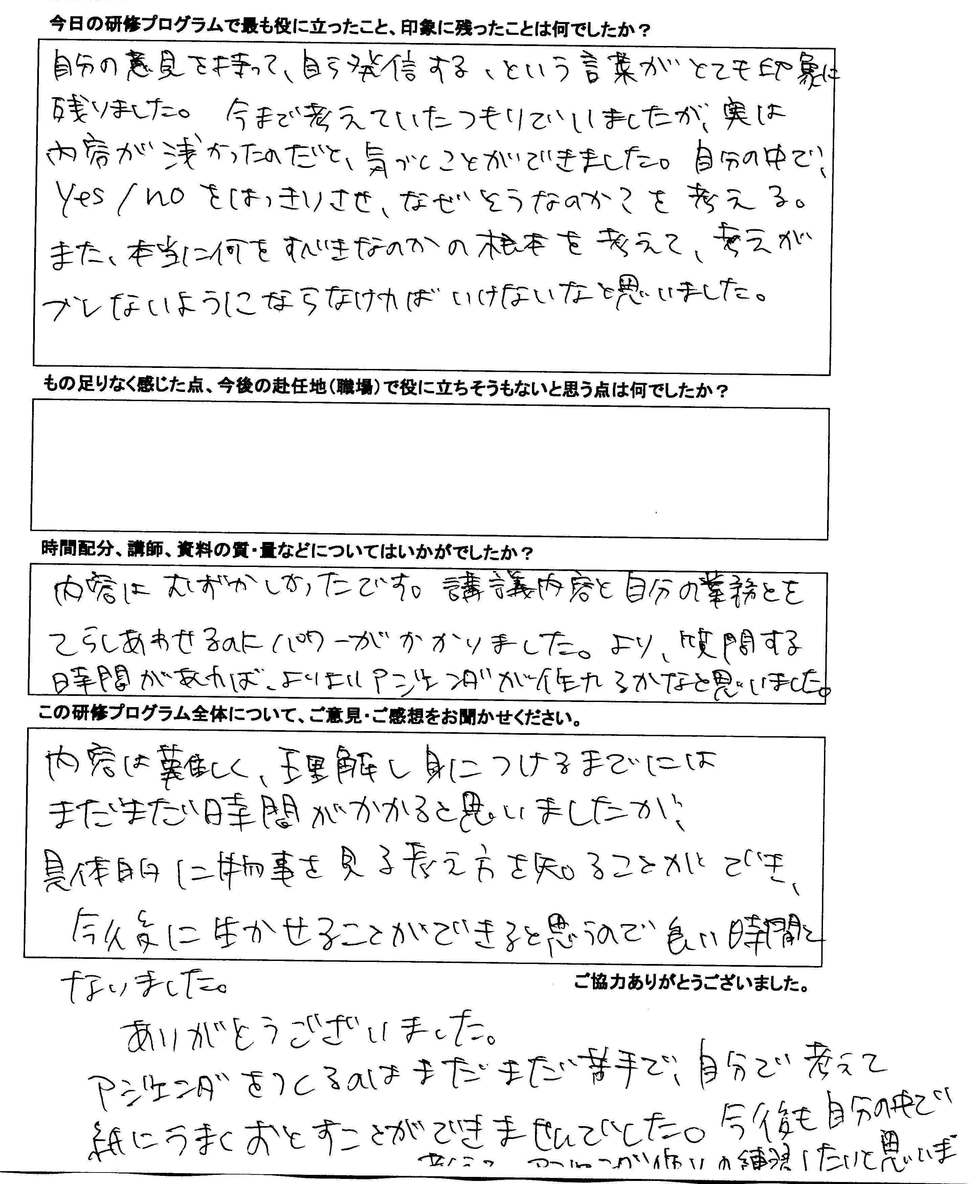 今日の研修プログラムで最も役に立ったこと、印象に残ったことは何でしたか？
自分の意見を持って、自ら発信する、という言葉がとても印象に
残りました。今まで考えていたつもりでいましたが、実は
内容が浅かったのだと、気づくことができました。自分の中で、
Yes/noをはっきりさせ、なぜそうなのか？を考える。
また、本当に何をすべきなのかの根本を考えて、考えが
ブレないようにならなければいけないなと思いました。
もの足りなく感じた点、今後の赴任地（職場）で役に立ちそうもないと思う点は何でしたか？
時間配分、講師、資料の質・量などについてはいかがでしたか？
内容はむずかしかったです。講議内容と自分の業務とを
てらしあわせるのにパワーがかかりました。より、質問する
時間があれば、よりよいアジェンダが作れるかなと思いました。
この研修プログラム全体について、ご意見・ご感想をお聞かせください。
内容は難しく、理解し身につけるまでには
まだまだ時間がかかると思いましたが、
具体的に物事を見る考え方を知ることができ、
今後に生かせることができると思うので良い時間と
なりました。
ご協力ありがとうございました。
ありがとうございました。
アジェンダをつくるのはまだまだ苦手で、自分で考えて
紙にうまくおとすことができませんでした。今後も自分の中で
考えて、アジェンダ作りの練習したいと思いま